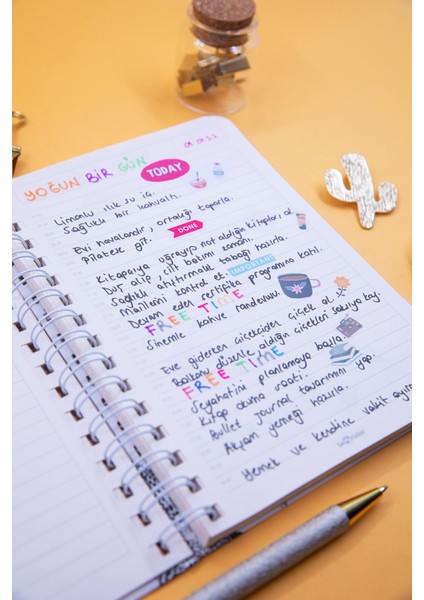 YOĞUN BİR GÜN
TODAY
Limonlu ılık su iç.
Sağlıklı bir kahvaltı.
Evi havalandır, ortalığı toparla.
Pilatese git.
DONE
Kitapçıya uğrayıp not aldığın kitapları al
Duş alıp, cilt bakımı zamanı.
Sağlıklı atıştırmalık tabağı hazırla.
Maillerini kontrol et.
IMPORTANT
Devam eden sertifika programına katıl.
FREE TIME
Sinemle kahve randevusu.
Eve giderken çiçekçiden çiçek al.
Balkonu düzenle aldığın çiçekleri saksıya koy.
FREE TIME
Seyahatini planlamaya başla.
Kitap okuma saati.
Bullet journal tasarımını yap.
Akşam yemeği hazırla.
Yemek ve kendine vakit